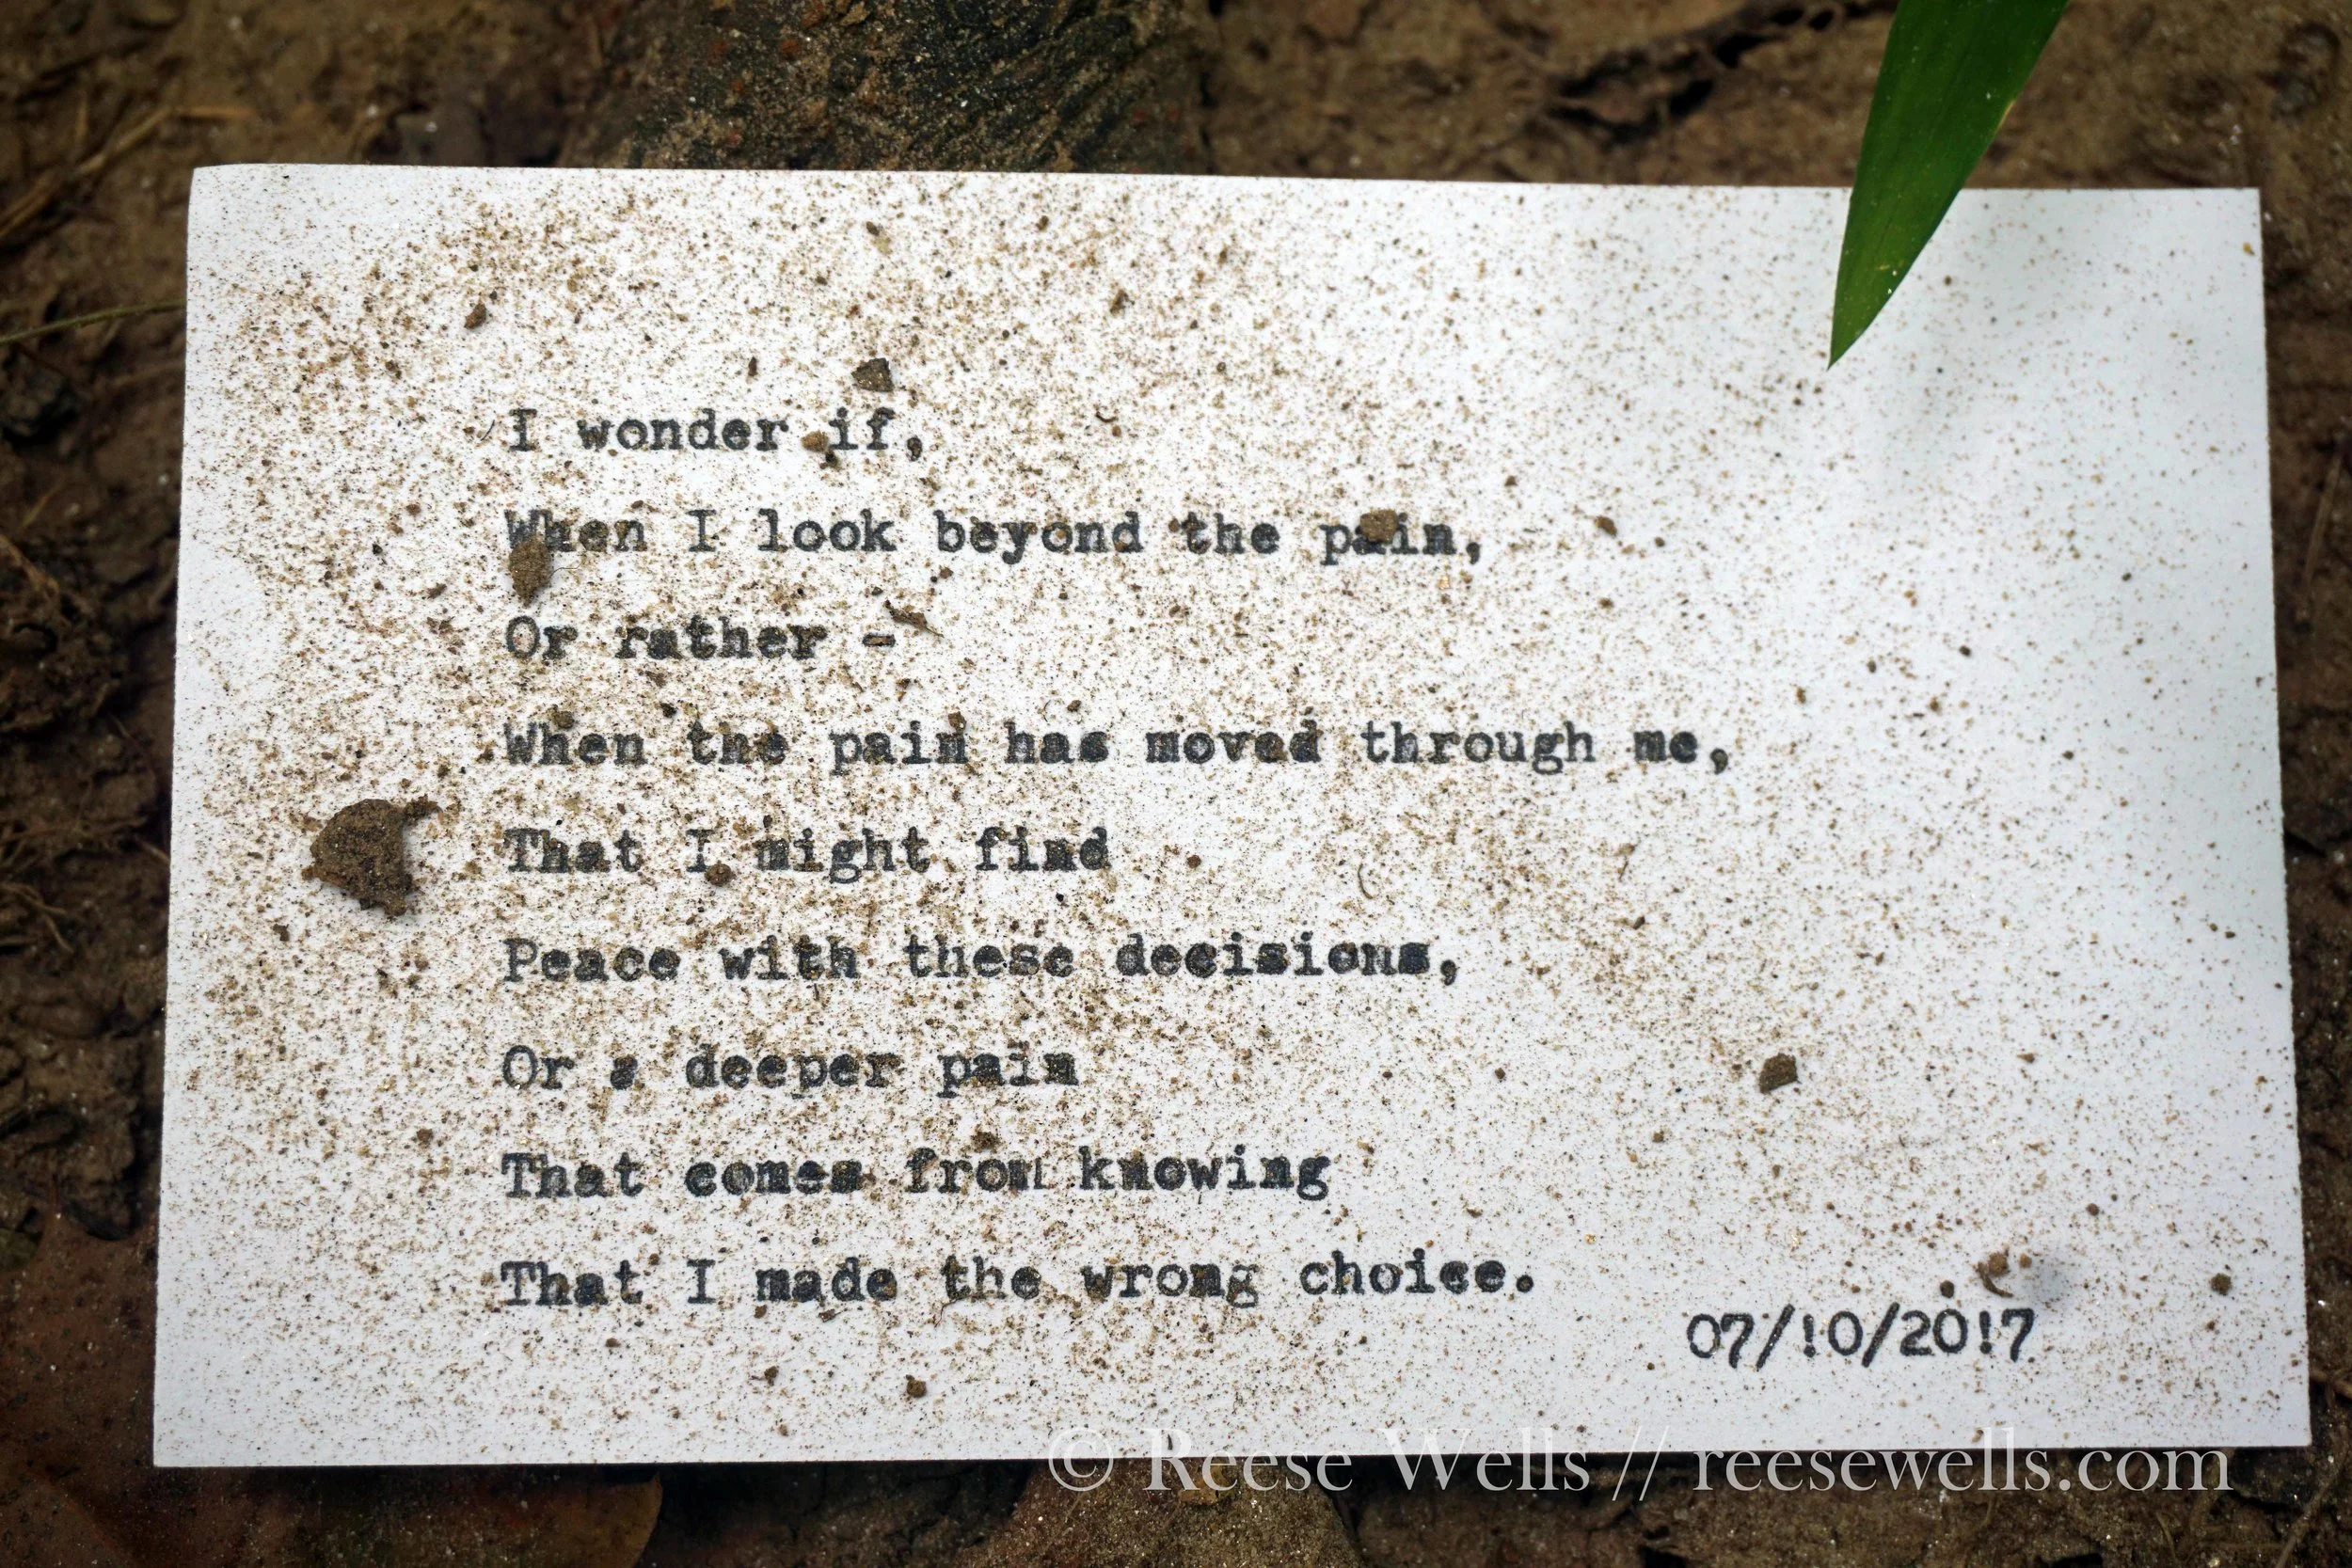 I wonder if,
When I look beyond the pain,
Or rather -
When the pain has moved through me,
That I might find
Peace with these decisions,
Or a deeper pain
That comes from knowing
That I made the wrong choice.
07/10/2017
© Reese Wells // reesewells.com